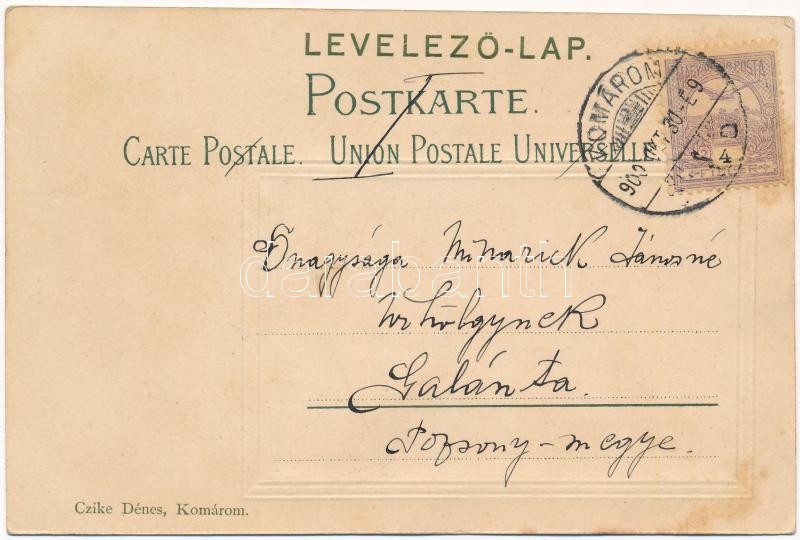 LEVELEZŐ-LAP.
POSTKARTE.
CARTE POSTALE. UNION POSTALE UNIVERSELLE
KOMÁROM
900 OKT. 30
4
FILLÉR
Őnagysága Minarick Jánosné
Urhölgynek
Galánta.
Pozsony-megye.
darabanth
Czike Dénes, Komárom.